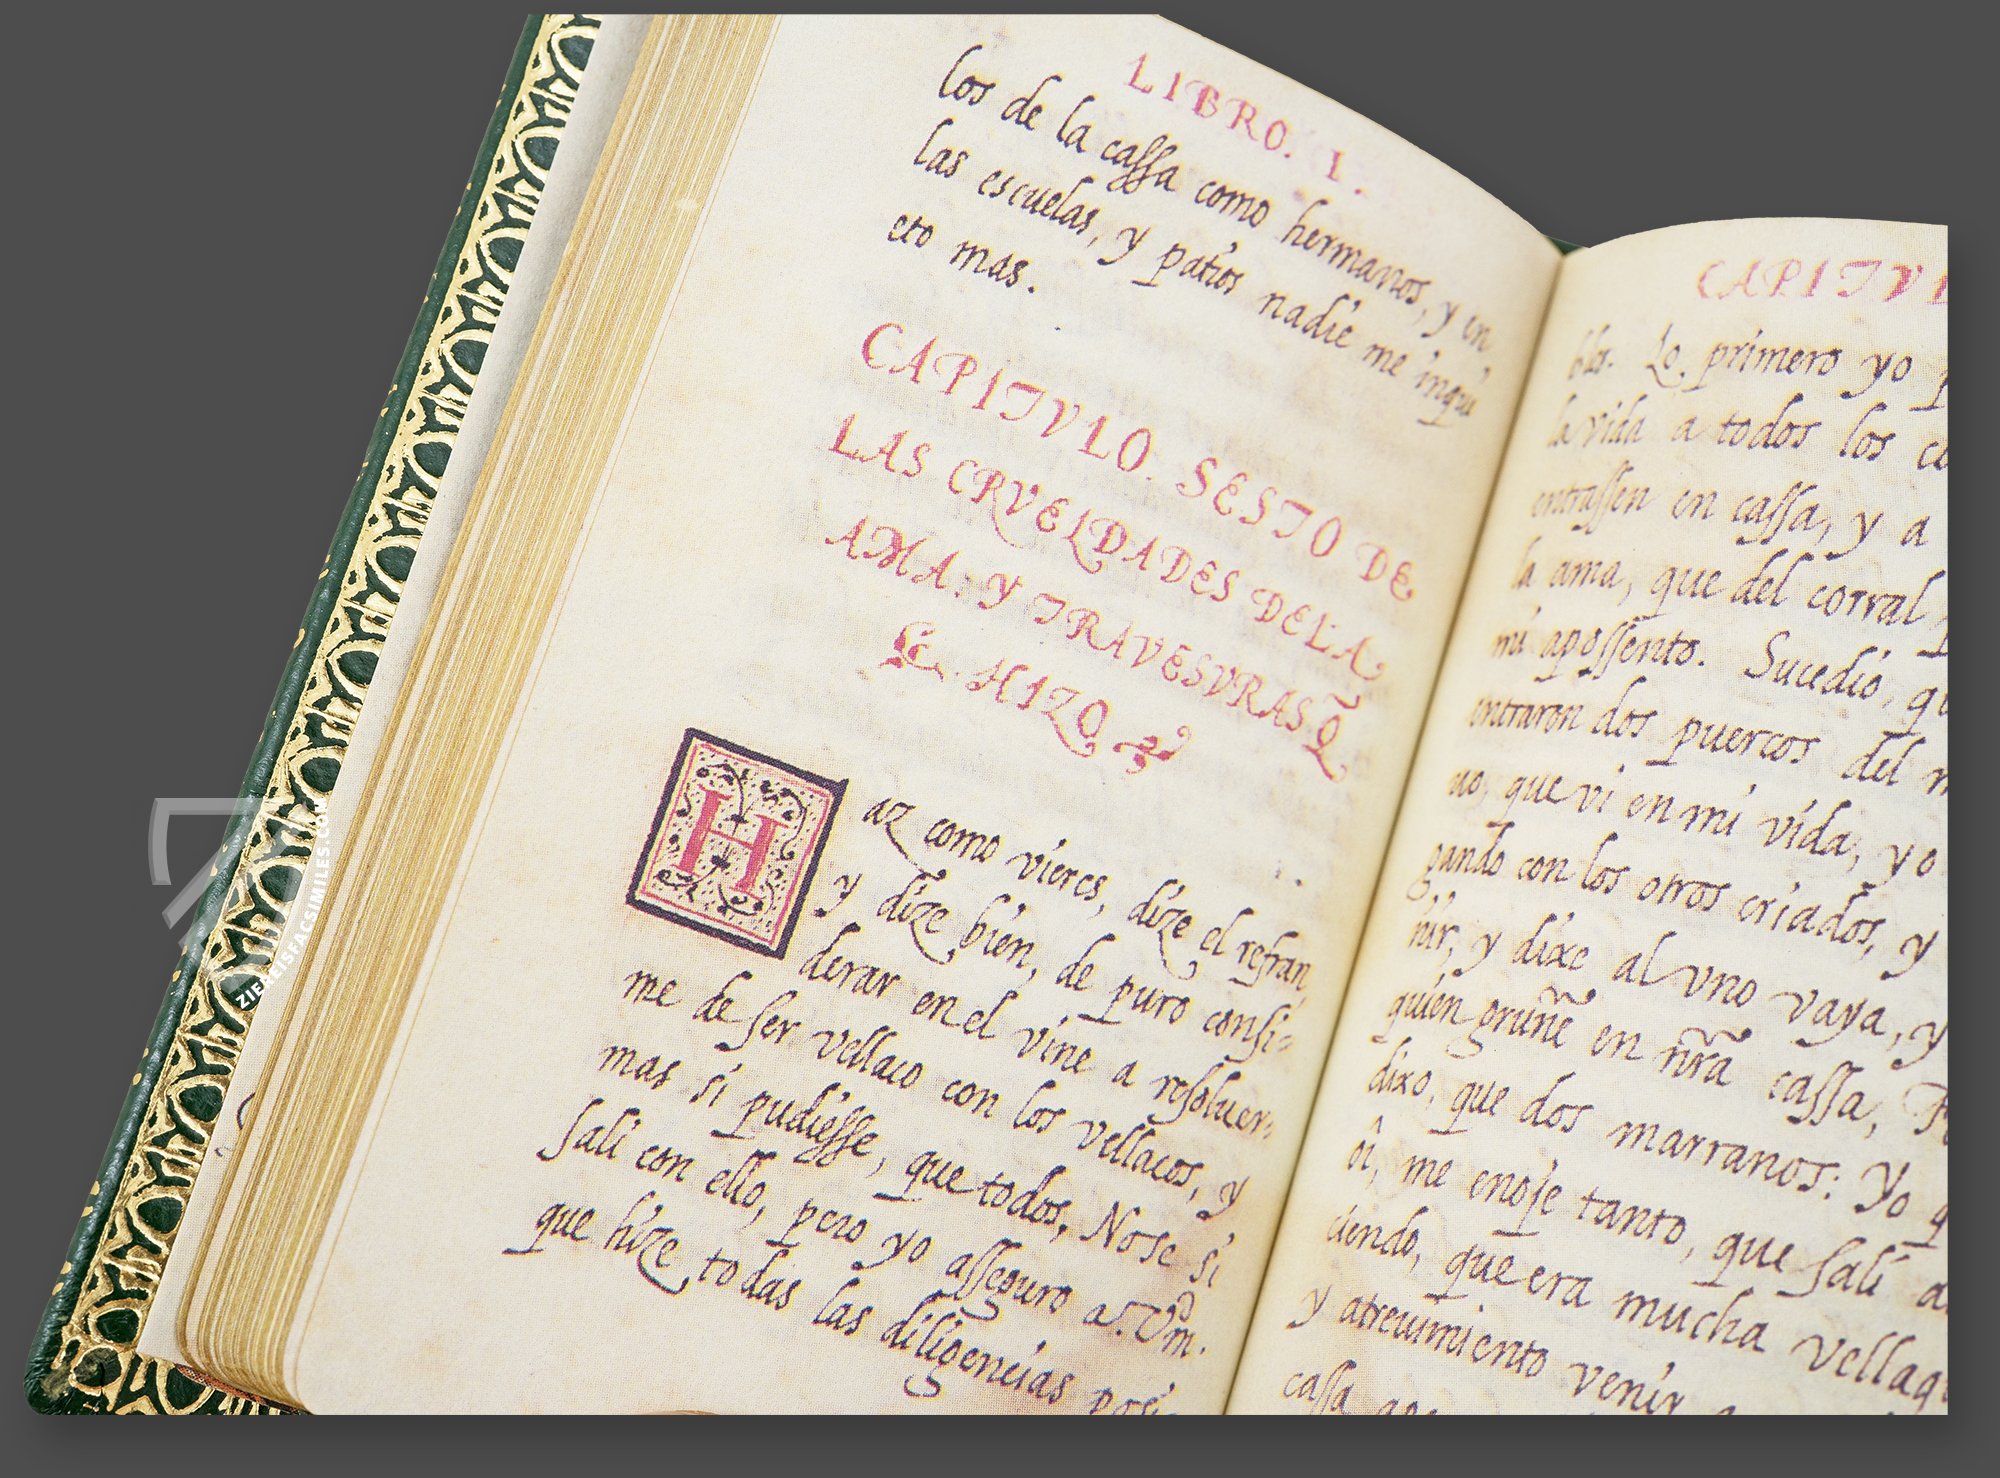 LIBRO. I.
los de la cassa como hermanos, y en
las escuelas, y patios nadie me inqui
eto mas.
CAPITVLO. SESTO DE
LAS CRVELDADES DE LA
AMA: Y TRAVESVRAS Q̃
EL. HIZO
Haz como vieres, dize el refran,
y dize bien, de puro consi-
derar en el vine a resoluer-
me de ser vellaco con los vellacos, y
mas si pudiesse, que todos, No se si
sali con ello, pero yo asseguro a. Vm.
que hize todas las diligencias posi
CAPITVL
bles. Lo primero yo p
la vida a todos los co
entrassen en cassa, y a
la ama, que del corral
mi apossento. Sucedio, qu
entraron dos puercos del m
uo, que vi en mi vida, yo
gando con los otros criados, y
ñir, y dixe al vno vaya, y
quien gruñe en nr̃a cassa, F
dixo, que dos marranos: Yo q
oi, me enoje tanto, que sali a
ciendo, que era mucha vellaq
y atreuimiento venir
cassa
ZIEREISFACSIMILES.COM